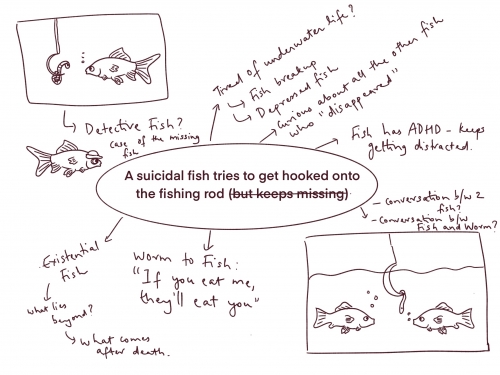 Tired of underwater life?
Fish breakup
Depressed fish
Curious about all the other fish
who "disappeared"
Detective Fish?
case of the missing
fish
Fish has ADHD - keeps
getting distracted.
A suicidal fish tries to get hooked onto
the fishing rod (but keeps missing)
- conversation b/w 2
fish?
- conversation b/w
Fish and Worm?
Existential
Fish
what lies
beyond?
what comes
after death.
Worm to Fish:
"If you eat me,
they'll eat you"